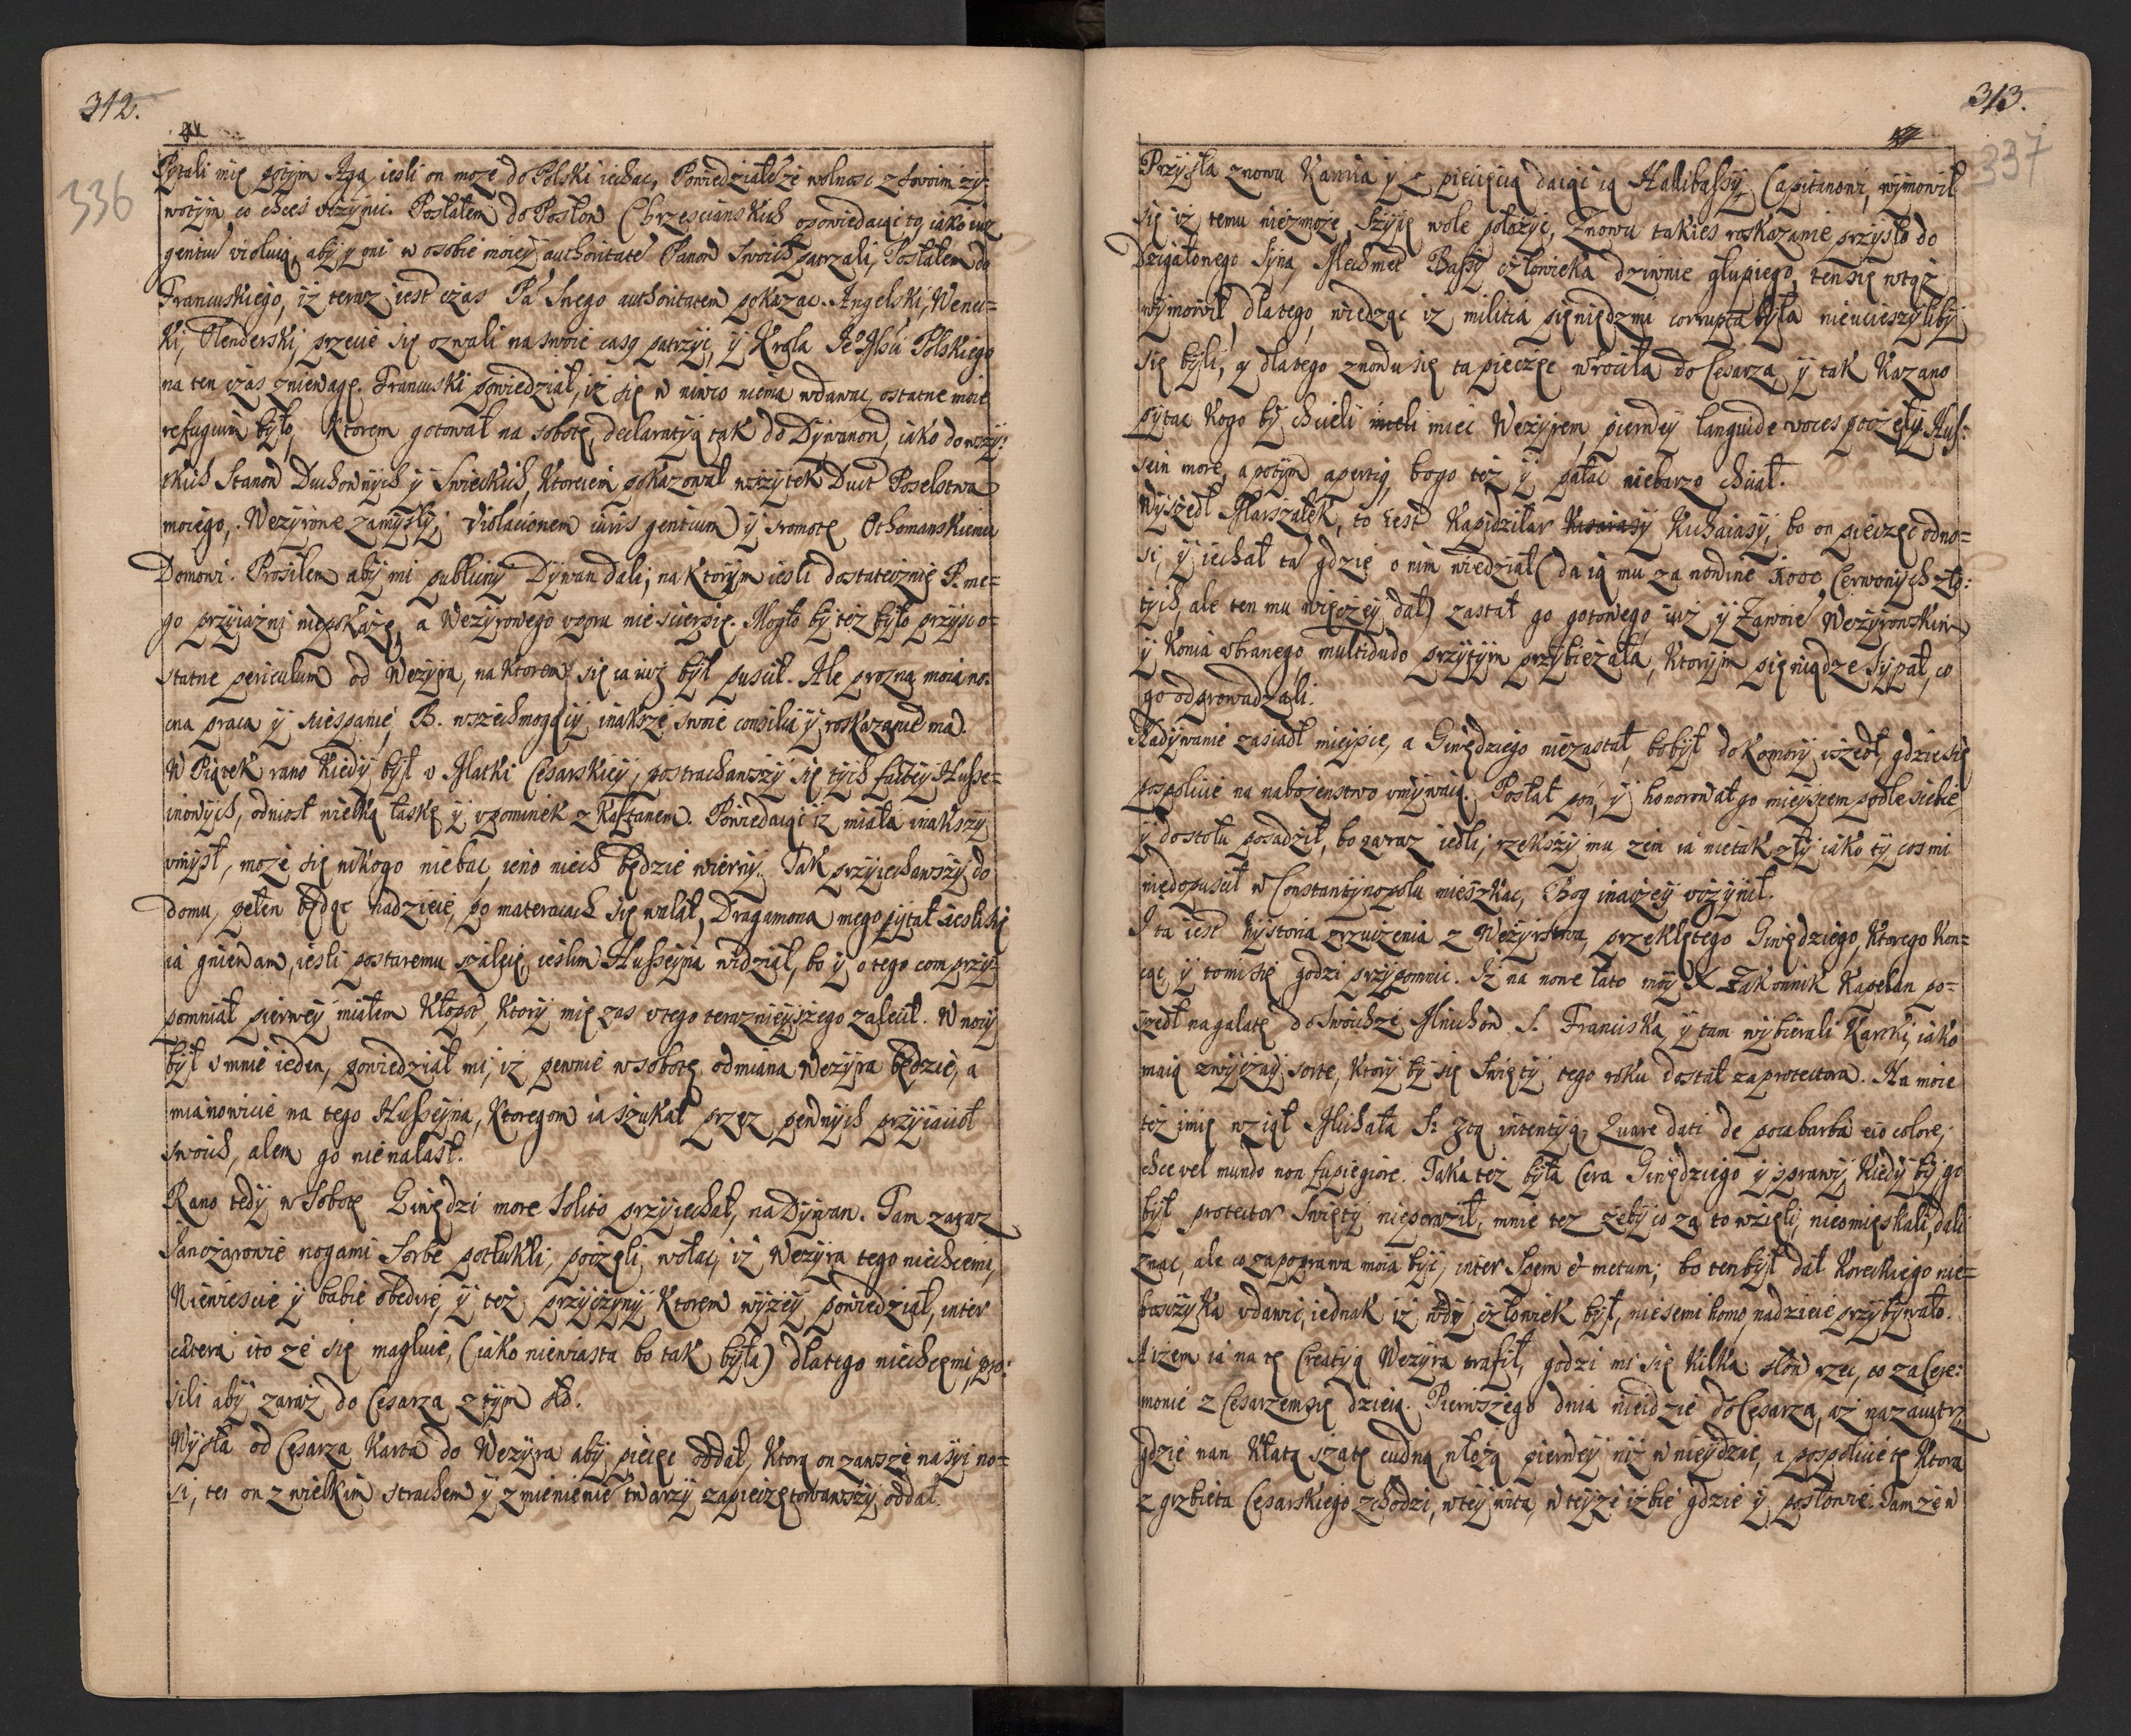 312.
336
Pytali mię potym Aga, iesli on może do Polski iechac, Powiedziałes że wolnosc z swoim zy-
wotym co chces vczynic. Posłałem do Posłow Chrzescianskich opowiedaiąc to, iako ius
gentiu violuią, aby y oni w osobie moiey authoritate Panow swoich patrzali, Posłałem do
Francuskiego, iz teraz iest czas Pa Swego authoritatem pokazac. Angelski, Wenec-
ki, Flenderski, przecie się ozwali na swoie casq patrzyc, y Krola Je° Msci Polskiego
na ten czas zniewagę. Francuski powiedział, iż się w niwco niema wdawac, ostatne moie
refugium było, Ktorem gotował na sobotę, declaratią tak do Dywanow, iako do wszy:
tkich Stanow Duchownych y Swieckich, Ktorciem pokazował wszytek Duct Poselstwa
moiego, Wezyrone zamysły, violacionem iuris gentium y sromotę Othomanskiemu
Domowi. Prosiłem aby mi publiczny Dywan dali, na ktorym iesli dostatecznię P. me-
go przyiazni niepokażę, a Wezyrowego vporu nie scierpię. Mogło by też było przyisc o-
statne periculum od Wezyra, na ktorem się ia iuż był puscił. Ale prozna moia no-
cna praca y niespanie, B. wszechmogący inaksze swoie consilia y roskazanie ma.
W Piątek rano kiedy był v Matki Cesarskiey, postrachawszy się tych factey Husse-
inowych, odniosł wielką łaskę y vpominek z Kaftanem. Powiedaiąc iż miała inakszy
vmysł, może się nikogo niebac, ieno niech będzie wierny. Tak przyiechawszy do
domu, pełen będąc nadzieie, po materacach się walał, Dragamona mego pytał iesli się
ia gniewam, iesli postaremu szaleię, ieslim Husseyna widział, bo y o tego com przy-
pomniał pierwey miałem kłopot, Ktory mię zas v tego teraznieyszego zalecił. W nocy
był v mnie ieden, powiedział mi, iz pewnie w sobotę odmiana Wezyra będzie, a
mianowicie na tego Husseyna, Ktoregom ia szukał przez pewnych przyiacioł
swoich, alem go nie nalasł.
Rano tedy w Sobotę Giurdzi more solito przyiechał, na Dywan. Tam zaraz
Janczarowie nogami Sorbe potłukli, poczęli wołac, iz Wezyra tego niechcemi,
Niewiescie y babie obedire, y też przyczyny Ktorem wyzey powiedział, inter
cætera ito ze się magluie, (iako niewiasta bo tak była) dlatego niechcemi, pro:
sili aby zaraz do Cesarza z tym szło.
Wyszła od Cesarza Karta do Wezyra aby pieczęc oddał, Ktorą on zawsze na szyi no-
si, tes on z wielkim strachem y zmienienie twarzy zapieczętowawszy oddał.
313.
337
Przyszła znowu Kartia y z pieczęcią daiąc ią Hallibassy Capitanowi, wymowił
się iz temu niezmoże, szyię wole położyc, Znowu takies roskazanie przyszło do
Dzigałonego syna, Mechmet Bassy człowieka dziwnie głupiego, ten się wtąż
wymowił, dlatego, wiedząc iz militia pieniędzmi corrupta była nieucieszyliby
się byli, y dlatego znowu się ta pieczęc wrociła do Cesarza, y tak Kazano
pytac kogo by chcieli mieli miec Wezyrem, pierwey languide voces poczęły Hus:
sein more, a potym apertię, bogo też y pałac niebarzo chciał.
Wyszedł Marszałek, to iest Kapidzilar Kisaiasy Kichaiasy, bo on pieczęc odno-
si, y iechał ta gdzie o nim wiedział (daią mu za nowinę 1000 Cerwonych zło:
tych, ale ten mu więczey dał) zastał go gotowego iuż y Zawoie Wezyrowskim
y Konia vbranego, multidudo przytym przybieżała, Ktorym pieniądze sypał, co
go odprowadzali.
Nadywanie zasiadł mieysce, a Giurdziego niezastał, bo był do komory wszedł, gdzie się
pospolicie na nabożenstwo vmywaią. Posłał poń, y honorował go mieyscem podle siebie,
y do stołu posadził, bo zaraz iedli, rzekszy mu zem ia nietak zły iako ty cos mi
niedopuscił w Constantynopolu mieszkac, Bog inaczey vczynił.
I ta iest hystoria zrzucenia z Wezyrstwa, przeklętego Giurdziego, Ktorego kon-
cąc, y to mi się godzi przypomnic. Iż na nowe lato moy X Zakonnik Kapelan po-
szedł na galatę do swoichże Mnichow S. Franciska, y tam wybierali Kartki, iako
maią zwyczay sorte, Ktory by się święty tego roku dostał za protectora. Na moie
też imię wziął Michała S: z tą intentią, Quare dati de poca barba eio colore,
chce vel mundo non fu piegiore. Taka też była Cera Giurdziego y sprawy, Kiedy by go
był protector święty nieporaził, mnie tez żeby co za to wzięli, nieomięskali, dali
znac, ale co za poprawa moia byc, inter spem & metum; bo ten był dał Koreckiego nie-
boszczyka vdawic, iednak iz wdy człowiek był, nie semi homo, nadzieie przybywało.
A iżem ia na tę Creatią Wezyra trafił, godzi mi się kilka słow rzec, co za Cere:
monie z Cesarzem się dzieią. Pierwszego dnia nieidzie do Cesarza, aż nazaiutrz,
gdzie nan kłatą szatę cudną włożą pierwey niz wnieydzie, a pospolicie tę Ktora
z grzbieta Cesarskiego zchodzi, w tey wita, w teyże izbie gdzie y posłowie. Tamże w